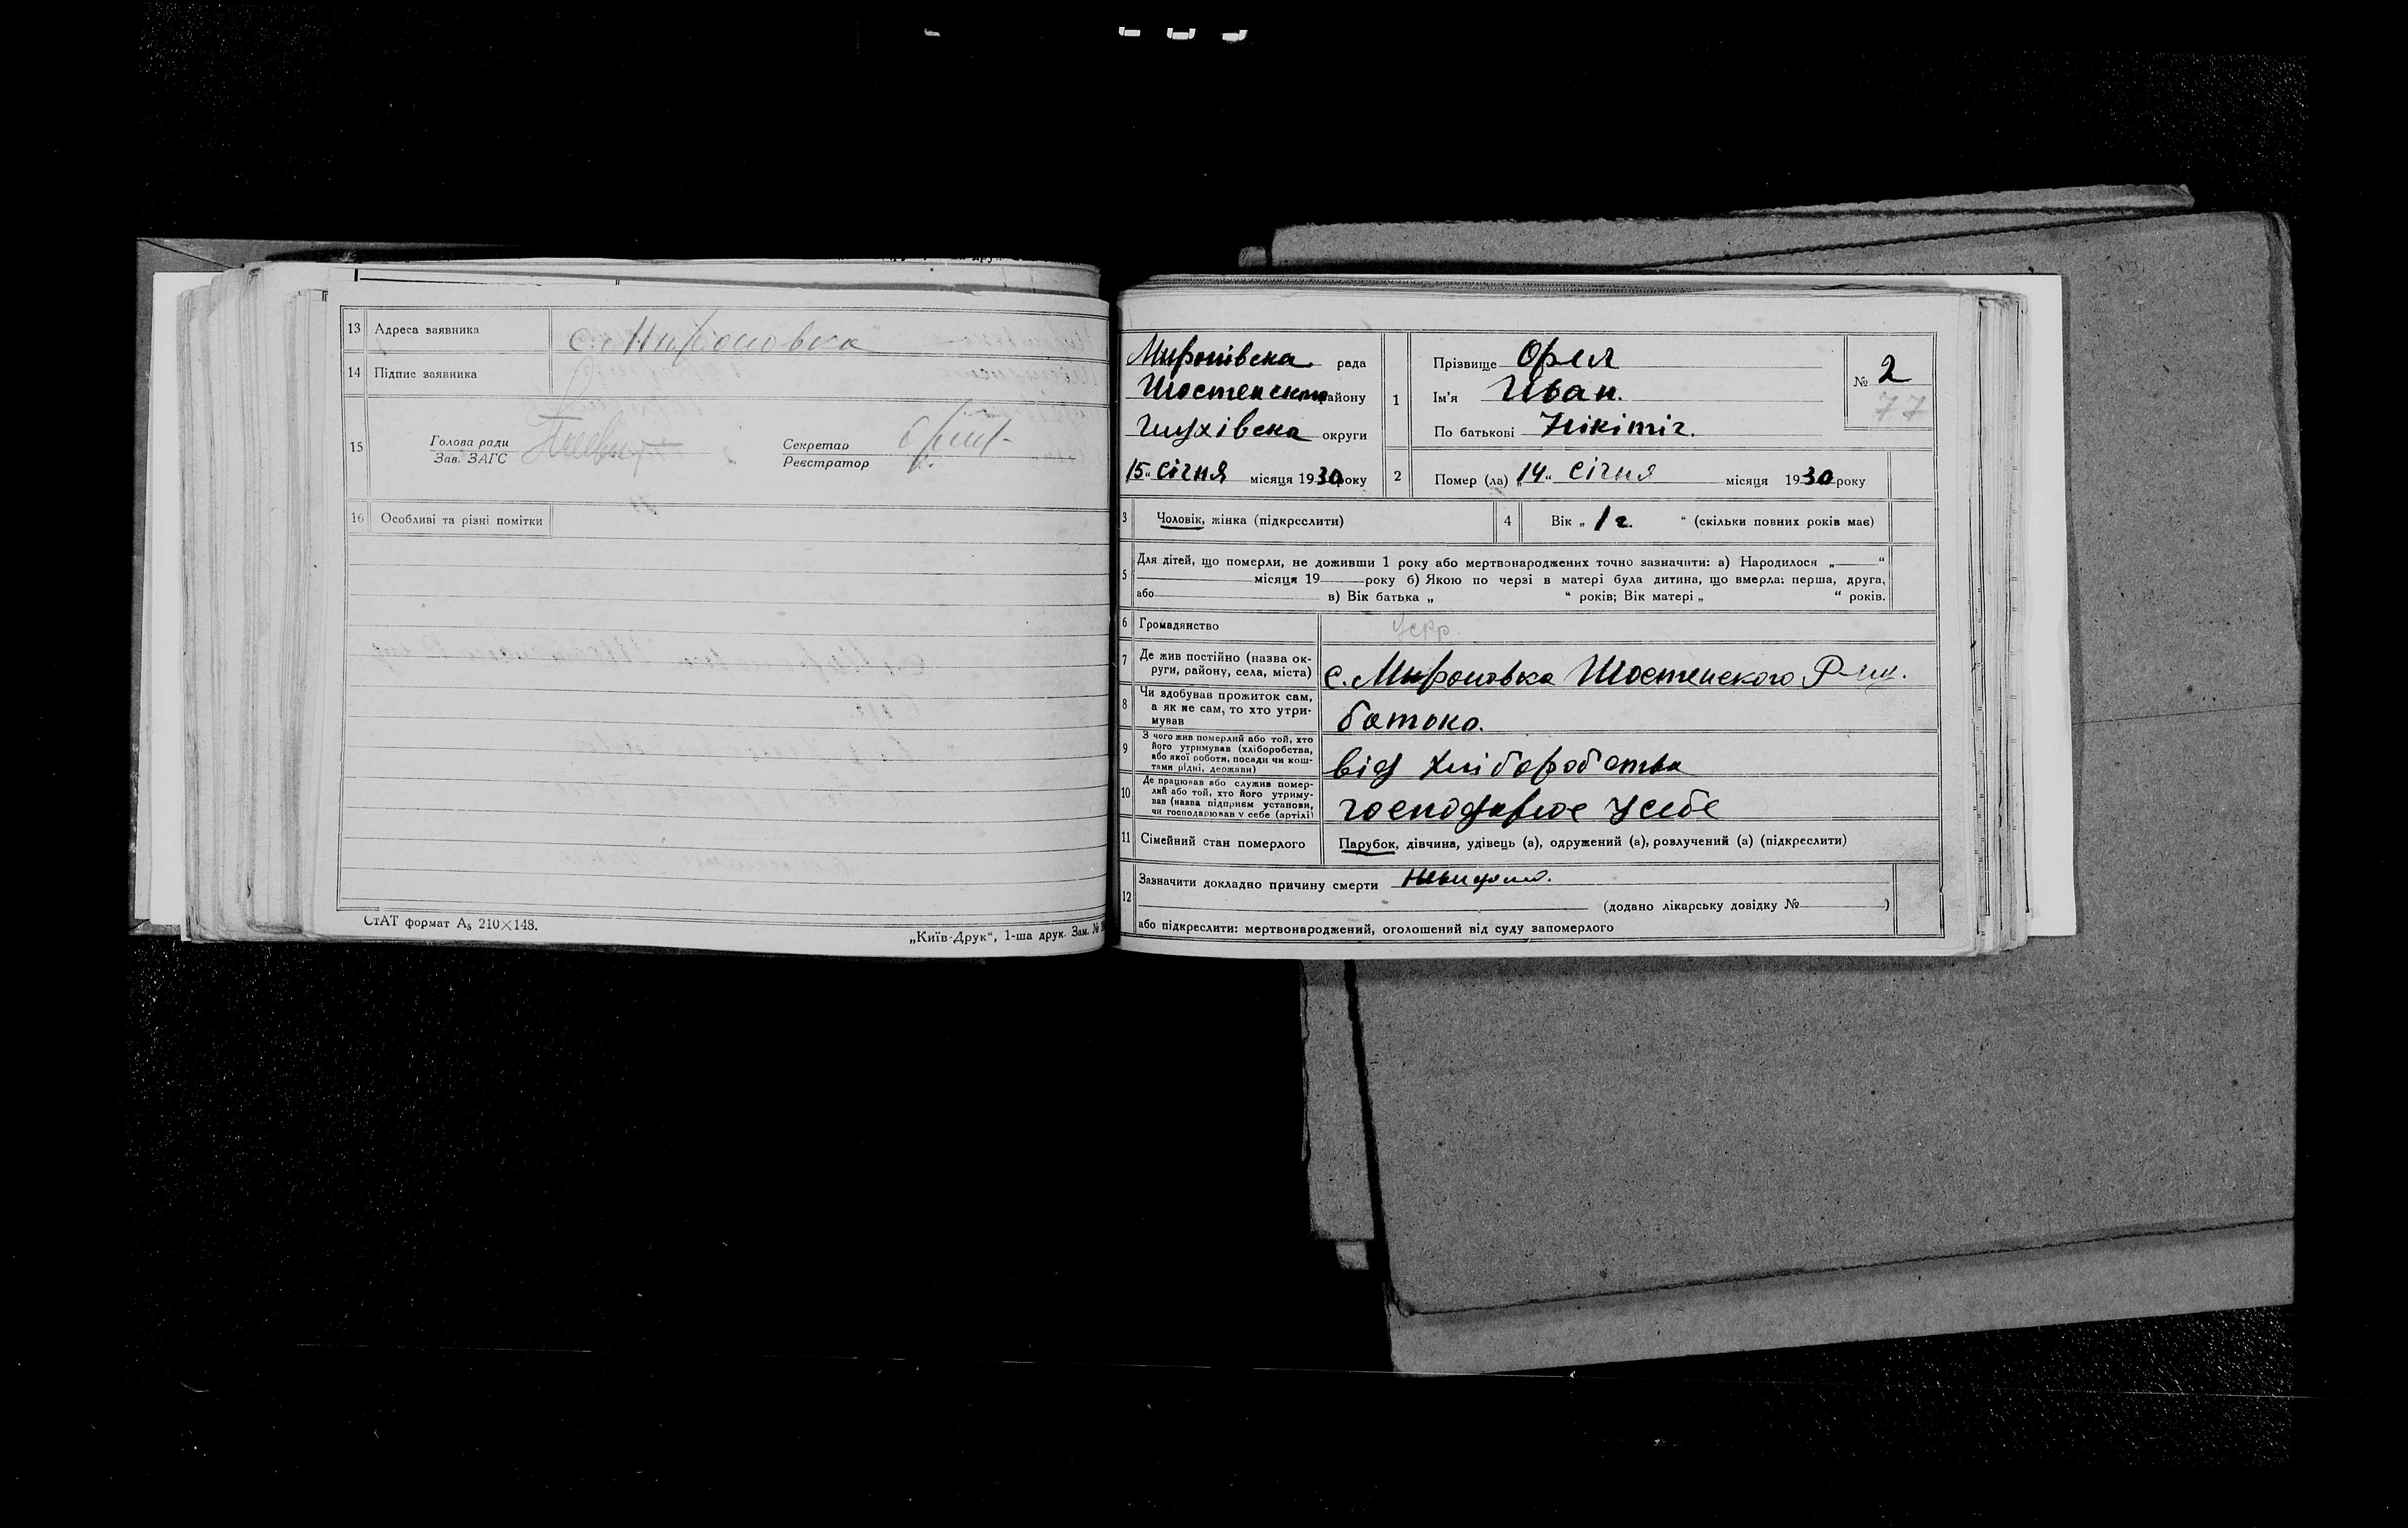 13 Адреса заявника с. Мироновка
14 Підпис заявника
15 Голова ради
Зав. ЗАГС
Секретар
Реєстратор
16 Особливі та різні помітки
СтАТ формат А₅ 210×148.
„Київ-Друк“, 1-ша друк. Зам. №
Миронівска рада
Шостенского району
Глухівска округи
15 „ січня місяця 1930 року
1 Прізвище Орел
Ім'я Иван.
По батькові Нікітіч.
№ 2
77
2 Помер (ла) „ 14 “ січня місяця 1930 року
3 Чоловік, жінка (підкреслити)
4 Вік „ 1 г. “ (скільки повних років має)
5 Для дітей, що померли, не доживши 1 року або мертвонароджених точно зазначити: а) Народилося „ “
місяця 19 року б) Якою по черзі в матері була дитина, що вмерла: перша, друга,
або в) Вік батька „ “ років; Вік матері „ “ років.
6 Громадянство Усрр.
7 Де жив постійно (назва ок-
руги, району, села, міста) с. Мироновка Шостенского
8 Чи здобував прожиток сам,
а як не сам, то хто утри-
мував батько.
9 З чого жив померлий або той, хто
його утримував (хліборобства,
або якої роботи, посади чи кош-
тами рідні, держави) від хліборобства
10 Де працював або служив помер-
лий або той, хто його утриму-
вав (назва підприєм установи,
чи господарював у себе (артілі) господарює у себе
11 Сімейний стан померлого Парубок, дівчина, удівець (а), одружений (а), розлучений (а) (підкреслити)
12 Зазначити докладно причину смерти Невидомо.
(додано лікарську довідку № )
або підкреслити: мертвонароджений, оголошений від суду запомерлого